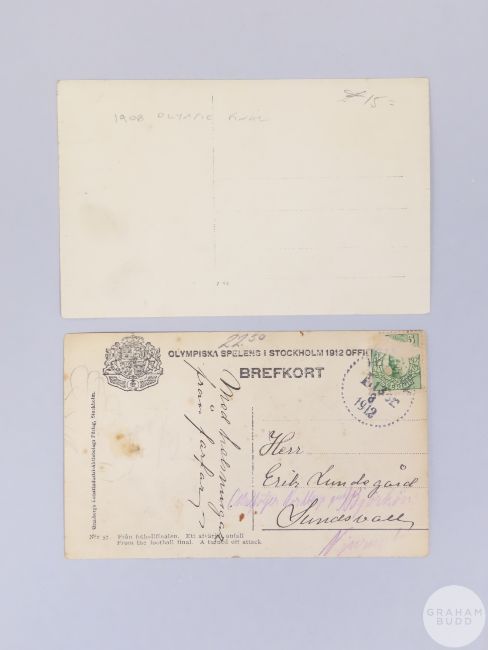 1908 OLYMPIC FINAL
15 =
22.50
OLYMPISKA SPELENS I STOCKHOLM 1912 OFFI
BREFKORT
1912
Med hälsningar
från farfar
Herr
Erik Lundegård
Sundsvall
Granbergs Konstindustri-Aktiebolags Förlag, Stockholm.
N:r 37. Från fotbollfinalen. Ett afvärjdt anfall
From the football final. A turned off attack.
GRAHAM
BUDD